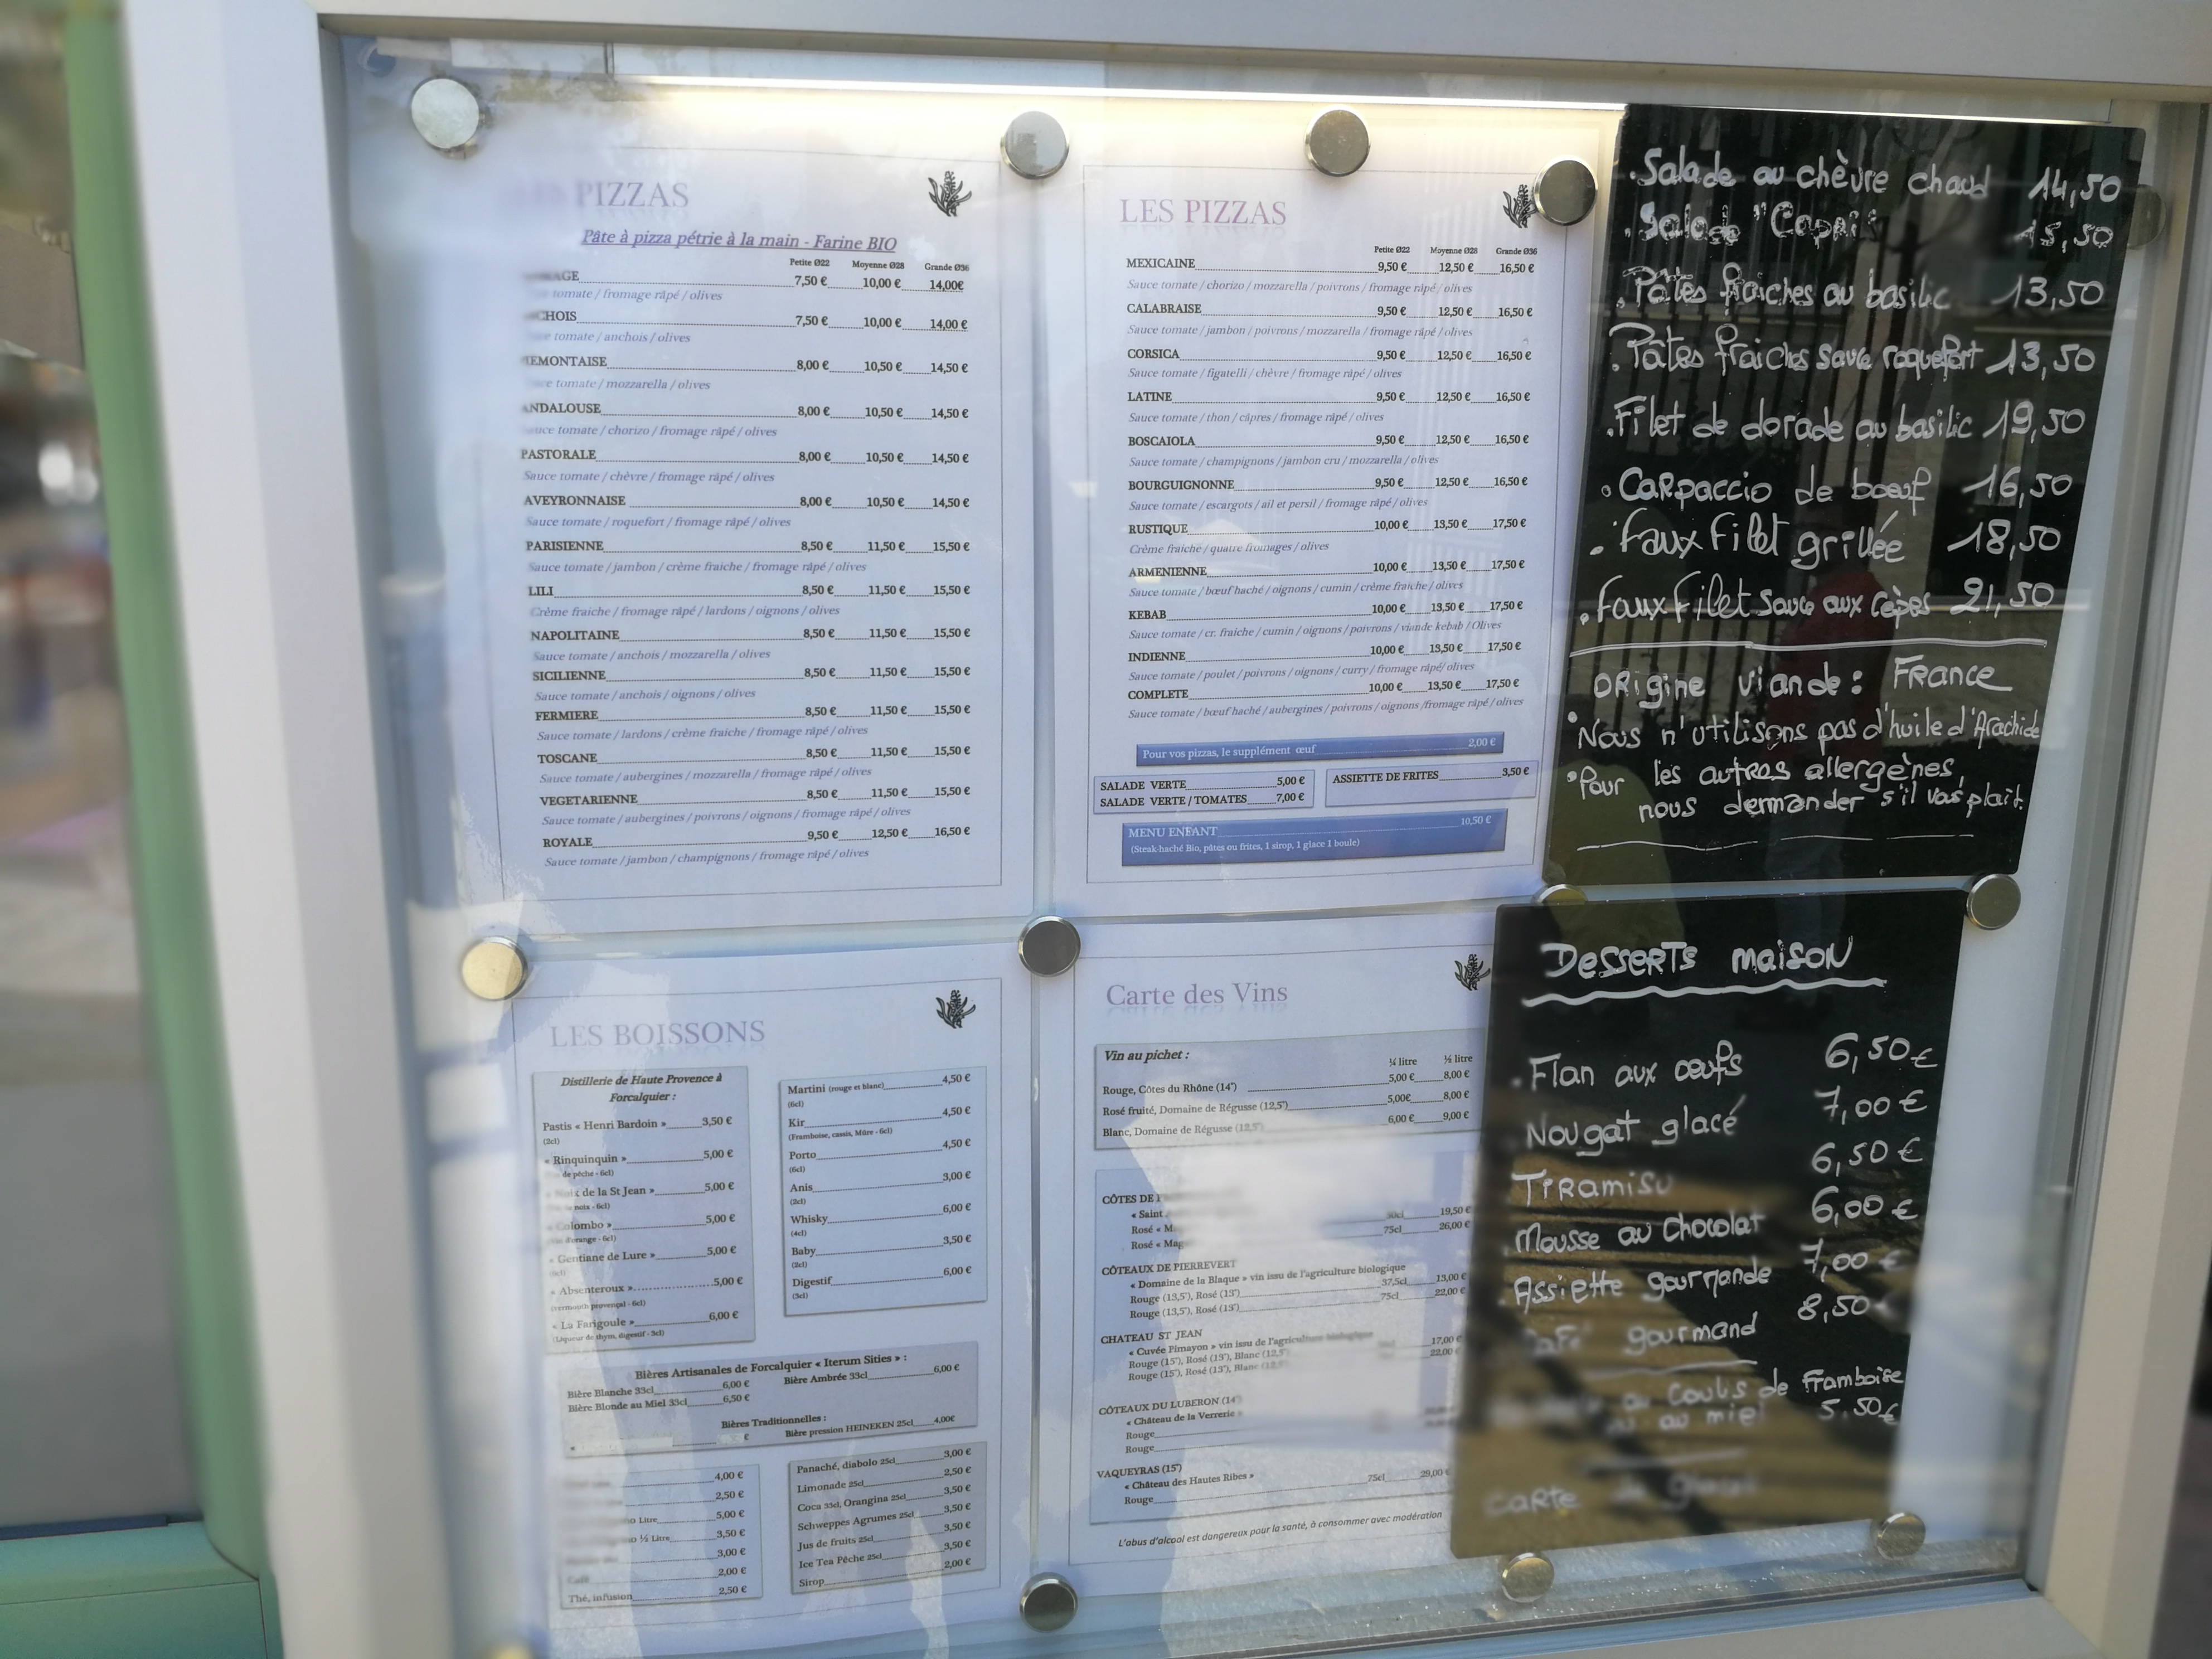 PIZZAS
Pâte à pizza pétrie à la main - Farine BIO
Petite Ø22 Moyenne Ø28 Grande Ø36
7,50 € 10,00 € 14,00€
tomate / fromage râpé / olives
7,50 € 10,00 € 14,00 €
tomate / anchois / olives
8,00 € 10,50 € 14,50 €
tomate / mozzarella / olives
ANDALOUSE 8,00 € 10,50 € 14,50 €
Sauce tomate / chorizo / fromage râpé / olives
PASTORALE 8,00 € 10,50 € 14,50 €
Sauce tomate / chèvre / fromage râpé / olives
AVEYRONNAISE 8,00 € 10,50 € 14,50 €
Sauce tomate / roquefort / fromage râpé / olives
PARISIENNE 8,50 € 11,50 € 15,50 €
Sauce tomate / jambon / crème fraiche / fromage râpé / olives
LILI 8,50 € 11,50 € 15,50 €
Crème fraiche / fromage râpé / lardons / oignons / olives
NAPOLITAINE 8,50 € 11,50 € 15,50 €
Sauce tomate / anchois / mozzarella / olives
SICILIENNE 8,50 € 11,50 € 15,50 €
Sauce tomate / anchois / oignons / olives
FERMIERE 8,50 € 11,50 € 15,50 €
Sauce tomate / lardons / crème fraiche / fromage râpé / olives
TOSCANE 8,50 € 11,50 € 15,50 €
Sauce tomate / aubergines / mozzarella / fromage râpé / olives
VEGETARIENNE 8,50 € 11,50 € 15,50 €
Sauce tomate / aubergines / poivrons / oignons / fromage râpé / olives
ROYALE 9,50 € 12,50 € 16,50 €
Sauce tomate / jambon / champignons / fromage râpé / olives
LES PIZZAS
Petite Ø22 Moyenne Ø28 Grande Ø36
MEXICAINE 9,50 € 12,50 € 16,50 €
Sauce tomate / chorizo / mozzarella / poivrons / fromage râpé / olives
CALABRAISE 9,50 € 12,50 € 16,50 €
Sauce tomate / jambon / poivrons / mozzarella / fromage râpé / olives
CORSICA 9,50 € 12,50 € 16,50 €
Sauce tomate / figatelli / chèvre / fromage râpé / olives
LATINE 9,50 € 12,50 € 16,50 €
Sauce tomate / thon / câpres / fromage râpé / olives
BOSCAIOLA 9,50 € 12,50 € 16,50 €
Sauce tomate / champignons / jambon cru / mozzarella / olives
BOURGUIGNONNE 9,50 € 12,50 € 16,50 €
Sauce tomate / escargots / ail et persil / fromage râpé / olives
RUSTIQUE 10,00 € 13,50 € 17,50 €
Crème fraiche / quatre fromages / olives
ARMENIENNE 10,00 € 13,50 € 17,50 €
Sauce tomate / bœuf haché / oignons / cumin / crème fraiche / olives
KEBAB 10,00 € 13,50 € 17,50 €
Sauce tomate / cr. fraiche / cumin / oignons / poivrons / viande kebab / Olives
INDIENNE 10,00 € 13,50 € 17,50 €
Sauce tomate / poulet / poivrons / oignons / curry / fromage râpé/ olives
COMPLETE 10,00 € 13,50 € 17,50 €
Sauce tomate / bœuf haché / aubergines / poivrons / oignons /fromage râpé / olives
Pour vos pizzas, le supplément œuf 2,00 €
SALADE VERTE 5,00 €
SALADE VERTE / TOMATES 7,00 €
ASSIETTE DE FRITES 3,50 €
MENU ENFANT 10,50 €
(Steak-haché Bio, pâtes ou frites, 1 sirop, 1 glace 1 boule)
. Salade au chèvre chaud 14,50
. Salade "Capri" 15,50
. Pâtes fraiches au basilic 13,50
. Pâtes fraiches sauce roquefort 13,50
. Filet de dorade au basilic 19,50
. Carpaccio de bœuf 16,50
. Faux Filet grillée 18,50
. Faux Filet sauce aux Cèpes 21,50
Origine viande : France
. Nous n'utilisons pas d'huile d'Arachide
. Pour les autres allergènes,
nous demander s'il vous plait.
LES BOISSONS
Distillerie de Haute Provence à
Forcalquier :
Pastis « Henri Bardoin » 3,50 €
(2cl)
« Rinquinquin » 5,00 €
de pêche - 6cl)
de la St Jean » 5,00 €
noix - 6cl)
« Colombo » 5,00 €
d'orange - 6cl)
« Gentiane de Lure » 5,00 €
« Absenteroux » 5,00 €
(vermouth provençal - 6cl)
« La Farigoule » 6,00 €
(Liqueur de thym, digestif - 3cl)
Martini (rouge et blanc) 4,50 €
(6cl)
Kir 4,50 €
(Framboise, cassis, Mûre - 6cl)
Porto 4,50 €
(6cl)
Anis 3,00 €
(2cl)
Whisky 6,00 €
(4cl)
Baby 3,50 €
(2cl)
Digestif 6,00 €
(3cl)
Bières Artisanales de Forcalquier « Iterum Sities » :
Bière Blanche 33cl 6,00 € Bière Ambrée 33cl 6,00 €
Bière Blonde au Miel 33cl 6,50 €
Bières Traditionnelles :
Bière pression HEINEKEN 25cl 4,00€
4,00 €
2,50 €
Litre 5,00 €
½ Litre 3,50 €
3,00 €
Café 2,00 €
Thé, infusion 2,50 €
Panaché, diabolo 25cl 3,00 €
Limonade 25cl 2,50 €
Coca 33cl, Orangina 25cl 3,50 €
Schweppes Agrumes 25cl 3,50 €
Jus de fruits 25cl 3,50 €
Ice Tea Pêche 25cl 3,50 €
Sirop 2,00 €
Carte des Vins
Vin au pichet :
¼ litre ½ litre
Rouge, Côtes du Rhône (14°) 5,00 € 8,00 €
Rosé fruité, Domaine de Régusse (12,5°) 5,00€ 8,00 €
Blanc, Domaine de Régusse (12,5°) 6,00 € 9,00 €
CÔTES DE
« Saint
Rosé « 50cl 19,50 €
Rosé « 75cl 26,00 €
CÔTEAUX DE PIERREVERT
« Domaine de la Blaque » vin issu de l'agriculture biologique
Rouge (13,5°), Rosé (13°) 37,5cl 13,00 €
Rouge (13,5°), Rosé (13°) 75cl 22,00 €
CHATEAU ST JEAN
« Cuvée Pimayon » vin issu de l'agriculture biologique
Rouge (15°), Rosé (13°), Blanc (12,5°) 17,00 €
Rouge (15°), Rosé (13°), Blanc (12,5°) 22,00 €
CÔTEAUX DU LUBERON (14°)
« Château de la Verrerie »
Rouge
Rouge
VAQUEYRAS (15°)
« Château des Hautes Ribes »
Rouge 75cl 29,00 €
L'abus d'alcool est dangereux pour la santé, à consommer avec modération
Desserts maison
. Flan aux œufs 6,50 €
Nougat glacé 7,00 €
Tiramisu 6,50 €
Mousse au Chocolat 6,00 €
Assiette gourmande 7,00 €
Café gourmand 8,50
au Coulis de Framboise
ou au miel 5,50€
Carte